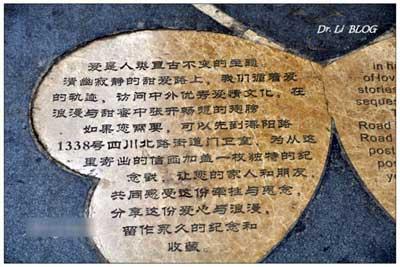 Dr. Li BLOG
爱是人类亘古不变的主题
清幽寂静的甜爱路上，我们循着爱
的轨迹，访问中外优秀爱情文化。在
浪漫与甜蜜中张开畅想的翅膀
如果您需要，可以先到溧阳路
1338号四川北路街道门卫室，为从这
里寄出的信函加盖一枚独特的纪
念戳，让您的家人和朋友，
共同感受这份牵挂与思念，
分享这份爱心与浪漫，
留作永久的纪念和
收藏。
in h
of lov
stories
seque
Road
Road
post
po